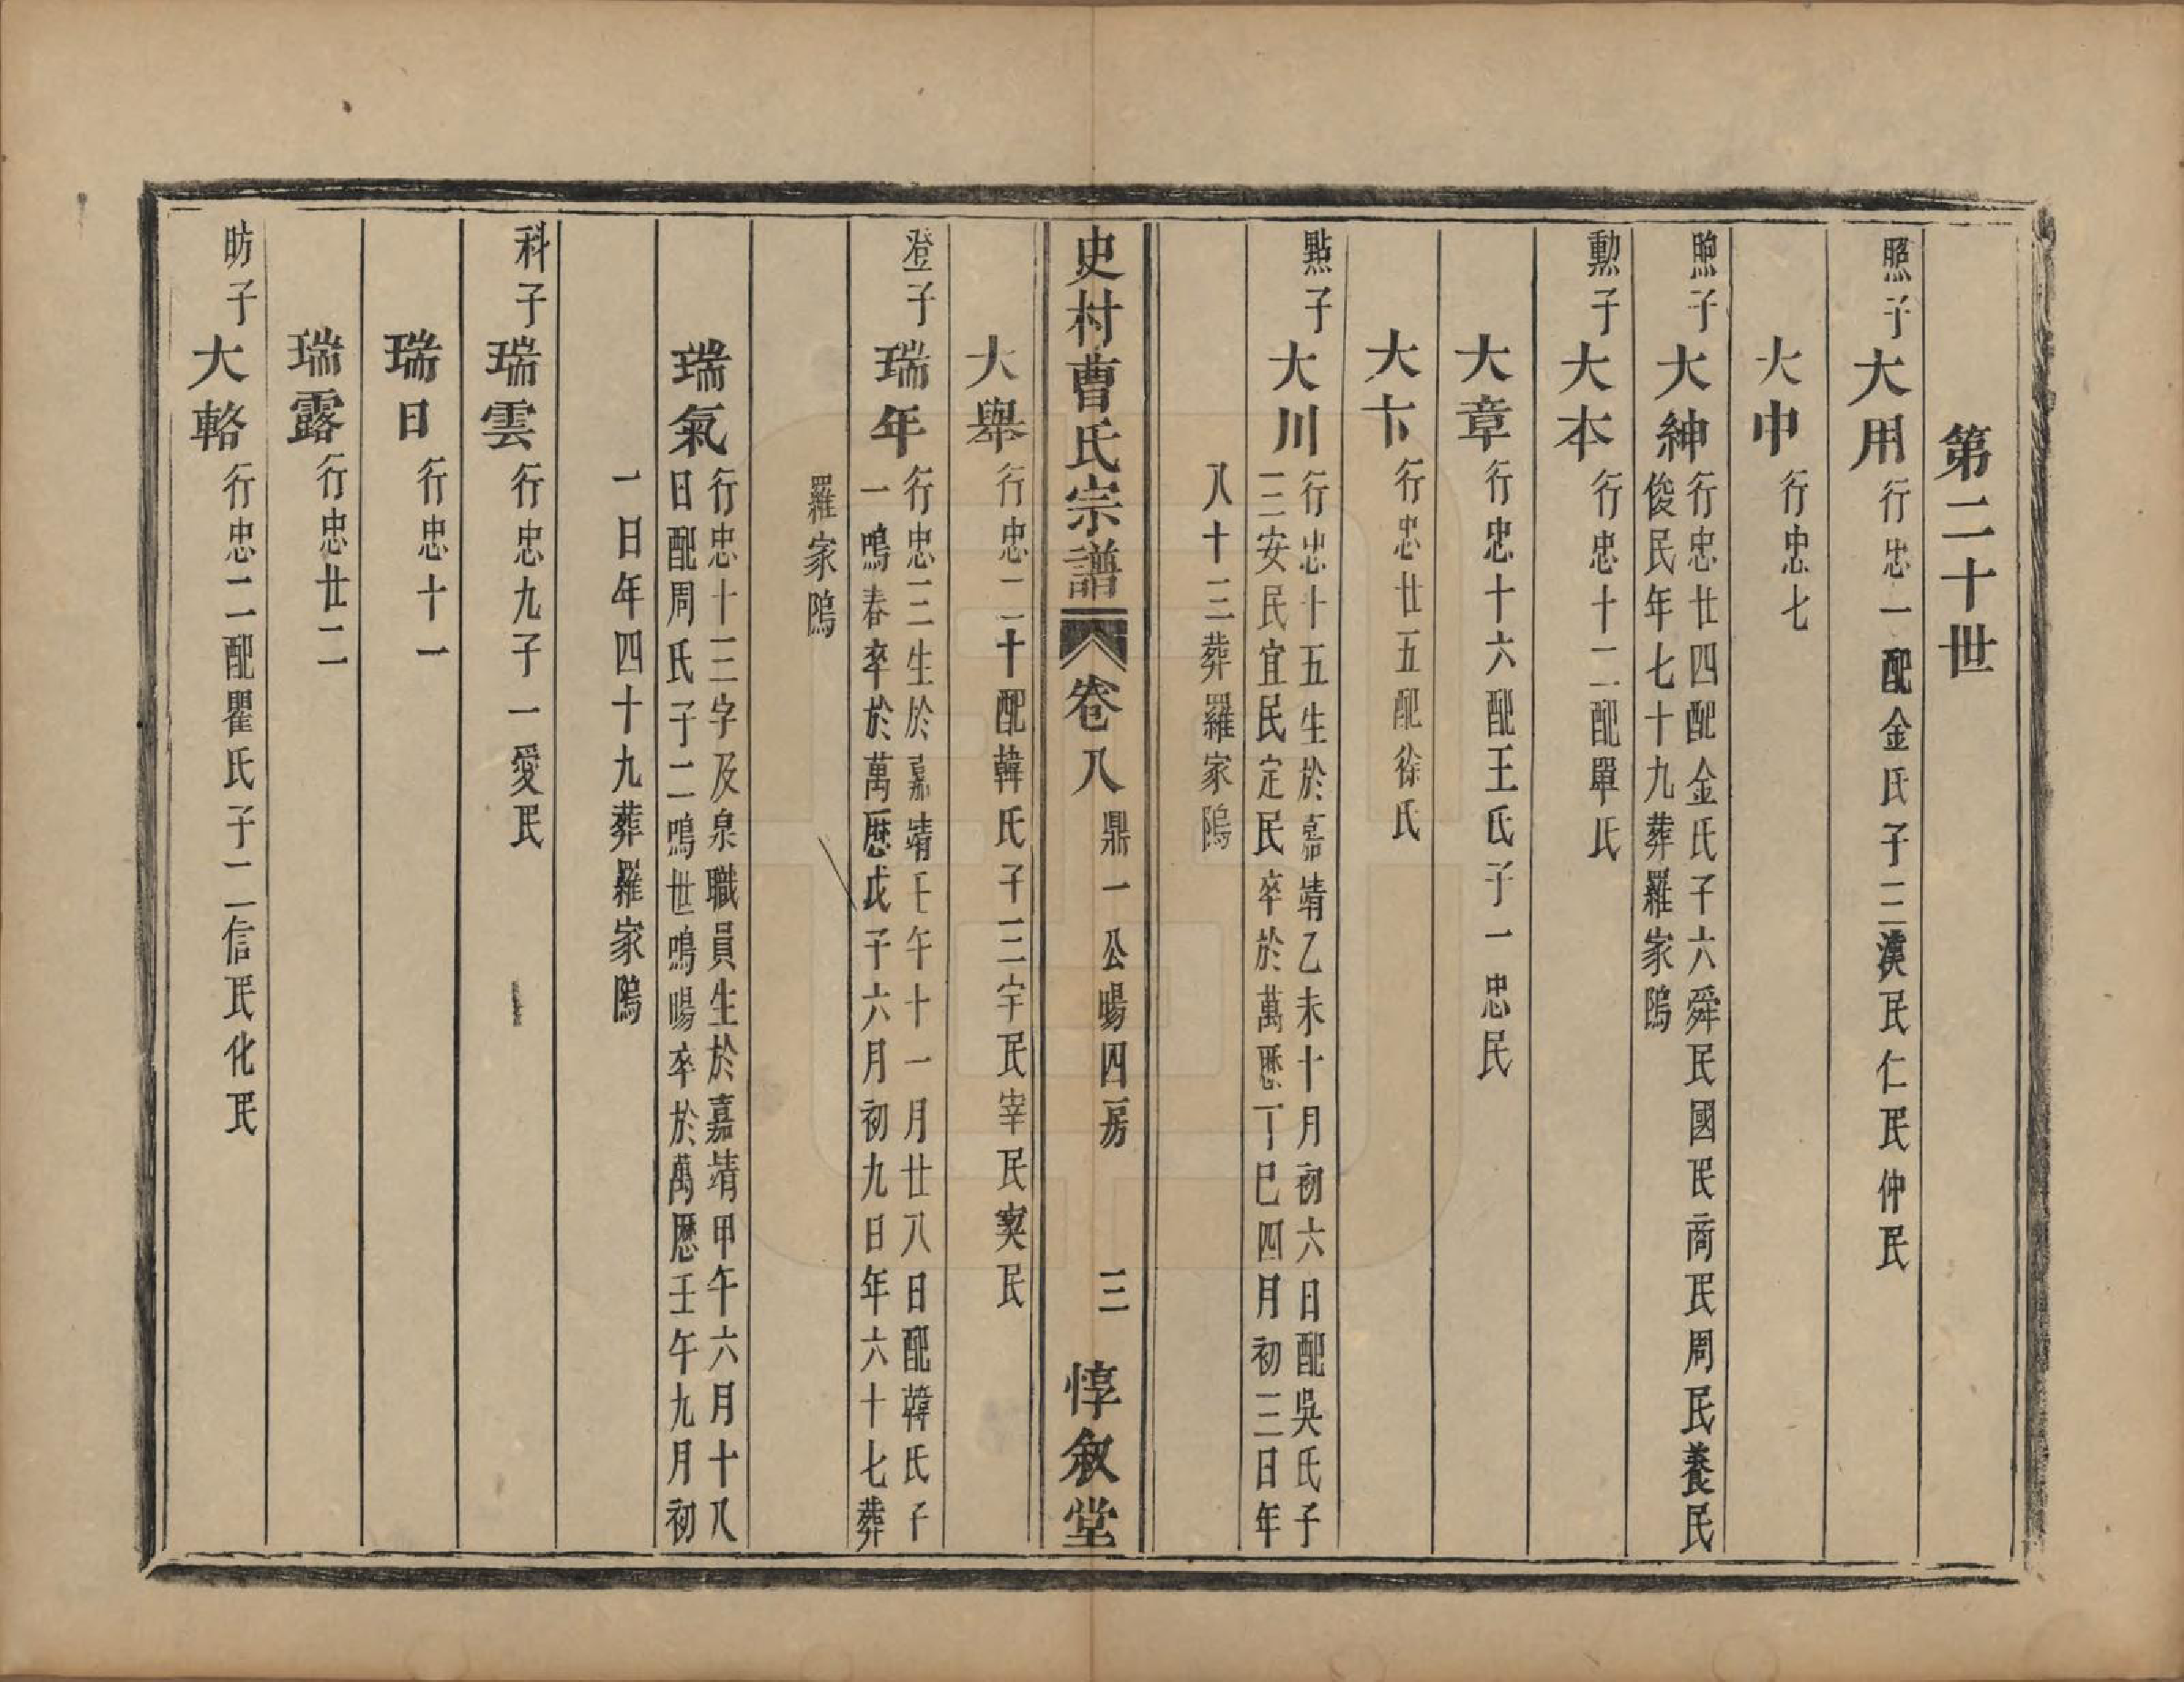 第二十世
照子大用行忠一配金氏子三漢民仁民仲民
大中行忠七
煦子大紳行忠廿四配金氏子六舜民國民商民周民養民
俊民年七十九葬羅家隖
勲子大本行忠十二配單氏
大章行忠十六配王氏子一忠民
大卞行忠廿五配徐氏
點子大川行忠十五生於嘉靖乙未十月初六日配吳氏子
三安民宜民定民卒於萬歷丁巳四月初三日年
八十三葬羅家隖
史村曹氏宗譜 卷八 鼎一公暘四房 三 惇叙堂
大舉行忠二十配韓氏子三宇民宰民寞民
澄子瑞年行忠三生於嘉靖壬午十一月廿八日配韓氏子
一鳴春卒於萬歷戊子六月初九日年六十七葬
羅家隖
瑞氣行忠十三字及泉職員生於嘉靖甲午六月十八
日配周氏子二鳴世鳴暘卒於萬歷壬午九月初
一日年四十九葬羅家隖
科子瑞雲行忠九子一愛民
瑞日行忠十一
瑞露行忠廿二
昉子大輅行忠二配瞿氏子二信民化民